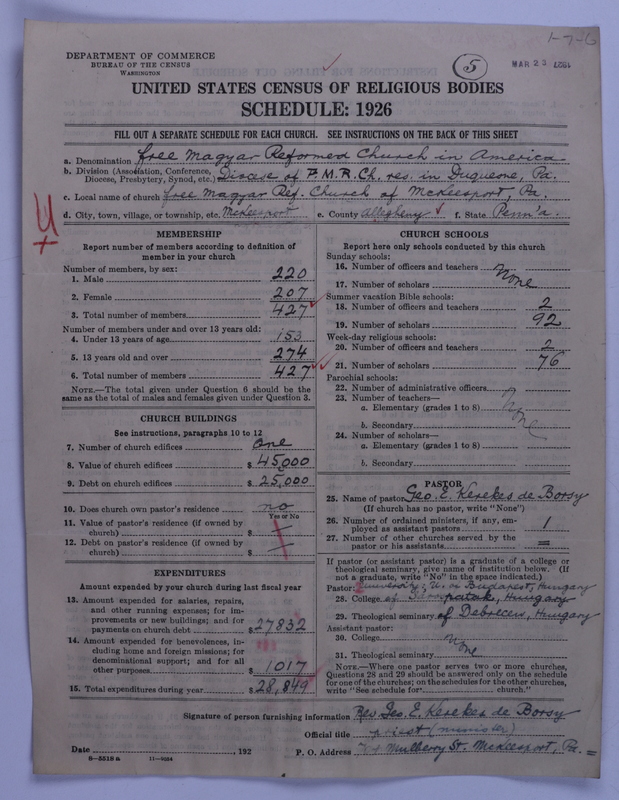 1-7-6
DEPARTMENT OF COMMERCE
BUREAU OF THE CENSUS
WASHINGTON
5
MAR 23 1927
UNITED STATES CENSUS OF RELIGIOUS BODIES
SCHEDULE: 1926
FILL OUT A SEPARATE SCHEDULE FOR EACH CHURCH. SEE INSTRUCTIONS ON THE BACK OF THIS SHEET
a. Denomination Free Magyar Reformed Church in America
b. Division (Association, Conference, Diocese, Presbytery, Synod, etc.) Diocese of F.M.R.Ch. res. in Duquesne, Pa.
c. Local name of church Free Magyar Ref. Church of McKeesport, Pa.
d. City, town, village, or township, etc. McKeesport e. County Allegheny f. State Penn'a.
MEMBERSHIP
Report number of members according to definition of
member in your church
Number of members, by sex:
1. Male 220
2. Female 207
3. Total number of members 427
Number of members under and over 13 years old:
4. Under 13 years of age 153
5. 13 years old and over 274
6. Total number of members 427
NOTE.—The total given under Question 6 should be the
same as the total of males and females given under Question 3.
CHURCH BUILDINGS
See instructions, paragraphs 10 to 12
7. Number of church edifices One
8. Value of church edifices $ 45,000
9. Debt on church edifices $ 25,000
10. Does church own pastor's residence no
Yes or No
11. Value of pastor's residence (if owned by
church) $ —
12. Debt on pastor's residence (if owned by
church) $ —
EXPENDITURES
Amount expended by your church during last fiscal year
13. Amount expended for salaries, repairs,
and other running expenses; for im-
provements or new buildings; and for
payments on church debt $ 27832
14. Amount expended for benevolences, in-
cluding home and foreign missions; for
denominational support; and for all
other purposes $ 1017
15. Total expenditures during year $ 28,849
CHURCH SCHOOLS
Report here only schools conducted by this church
Sunday schools:
16. Number of officers and teachers None
17. Number of scholars
Summer vacation Bible schools:
18. Number of officers and teachers 2
19. Number of scholars 92
Week-day religious schools:
20. Number of officers and teachers 2
21. Number of scholars 76
Parochial schools:
22. Number of administrative officers
23. Number of teachers—
a. Elementary (grades 1 to 8) None
b. Secondary
24. Number of scholars—
a. Elementary (grades 1 to 8)
b. Secondary
PASTOR
25. Name of pastor Geo. E. Kerekes de Borsy
(If church has no pastor, write "None")
26. Number of ordained ministers, if any, em-
ployed as assistant pastors 1
27. Number of other churches served by the
pastor or his assistants =
If pastor (or assistant pastor) is a graduate of a college or
theological seminary, give name of institution below. (If
not a graduate, write "No" in the space indicated.)
Pastor: Budapest, Hungary
28. College of patak, Hungary
29. Theological seminary of Debrecen, Hungary
Assistant pastor:
30. College None
31. Theological seminary
NOTE.—Where one pastor serves two or more churches,
Questions 28 and 29 should be answered only on the schedule
for one of the churches; on the schedules for the other churches,
write "See schedule for church."
Signature of person furnishing information Rev. Geo. E. Kerekes de Borsy
Official title priest (minister)
Date , 192
P. O. Address Mulberry St. McKeesport, Pa.
8-5518 a 11-9034